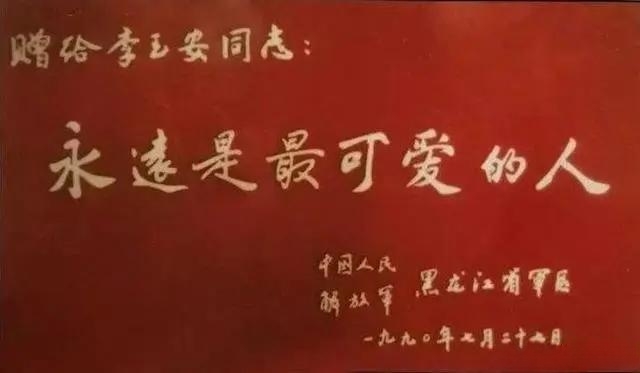 赠给李玉安同志：
永遠是最可爱的人
中国人民
解放军 黑龙江省军区
一九九〇年七月二十七日